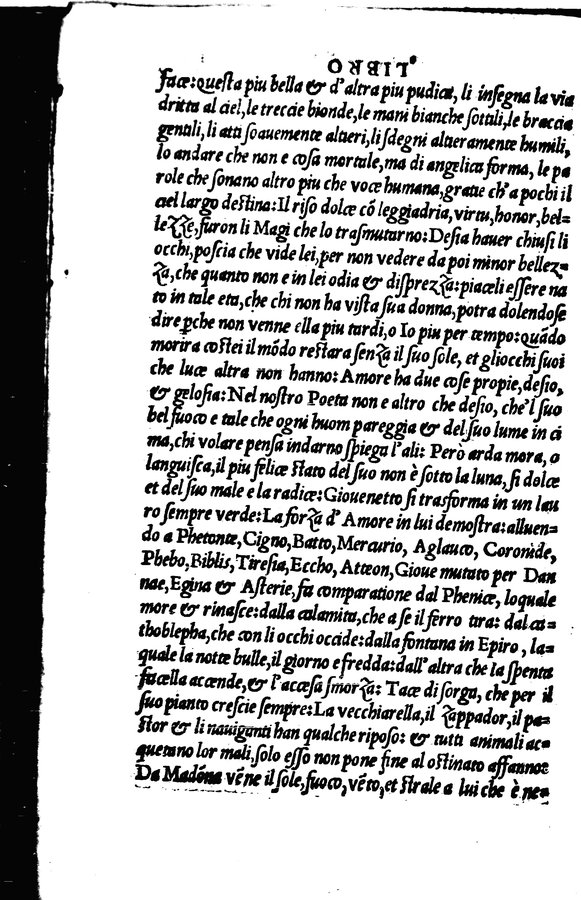 LIBRO
face:questa piu bella & d'altra piu pudica, li insegna la via
dritta al ciel,le treccie bionde,le mani bianche sottili,le braccia
gentili,li atti soauemente altieri,li sdegni altieramente humili,
lo andare che non e cosa mortale,ma di angelica forma, le pa
role che sonano altro piu che voce humana,gratie ch'a pochi il
ciel largo destina:Il riso dolce cō leggiadria, virtu, honor, bel-
lezze, furon li Magi che lo trasmutarno:Desia hauer chiusi li
occhi, poscia che vide lei,per non vedere da poi minor bellez-
za,che quanto non e in lei odia & disprezza:piaceli essere na
to in tale eta,che chi non ha vista sua donna,potra dolendose
dire ꝑche non venne ella piu tardi,o Io piu per tempo:quādo
morira costei il mōdo restara senza il suo sole, et gliocchi suoi
che luce altra non hanno: Amore ha due cose propie,desio,
& gelosia: Nel nostro Poeta non e altro che desio, che'l suo
bel fuoco e tale che ogni huom pareggia & del suo lume in ci
ma,chi volare pensa indarno spiega l'ali: Però arda mora, o
languisca,il piu felice stato del suo non è sotto la luna, si dolce
et del suo male e la radice:Giouenetto si trasforma in un lau
ro sempre verde:La forza d'Amore in lui demostra:alluen-
do a Phetonte,Cigno,Batto,Mercurio, Aglauco, Coronide,
Phebo,Biblis,Tiresia,Eccho, Atteon,Gioue mutato per Dan
nae,Egina & Asterie, fa comparatione dal Phenice, loquale
more & rinasce:dalla calamita,che a se il ferro tira: dal ca-
thoblepha,che con li occhi occide:dalla fontana in Epiro, la-
quale la notte bulle,il giorno e fredda:dall'altra che la spenta
facella accende,& l'accesa smorza: Tace di sorga, che per il
suo pianto crescie sempre:La vecchiarella,il zappador,il pa-
stor & li nauiganti han qualche riposo: & tutti animali ac-
quetano lor mali,solo esso non pone fine al ostinato affanno:
Da Madōna vēne il sole,fuoco,vēto,et strale a lui che è ne-